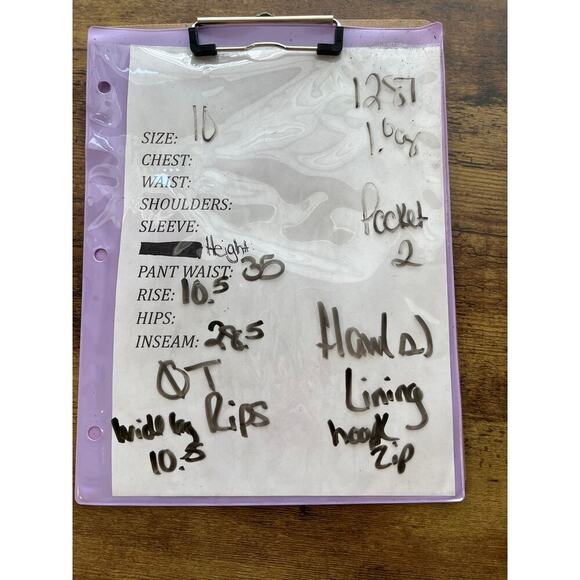 1287
1.0
SIZE: 10
CHEST:
WAIST:
SHOULDERS:
SLEEVE:
Height
Pocket
2
PANT WAIST: 35
RISE: 10.5
HIPS:
INSEAM: 28.5
Flaw(s)
ØT
Rips
Lining
wide leg
10.5
hook
zip